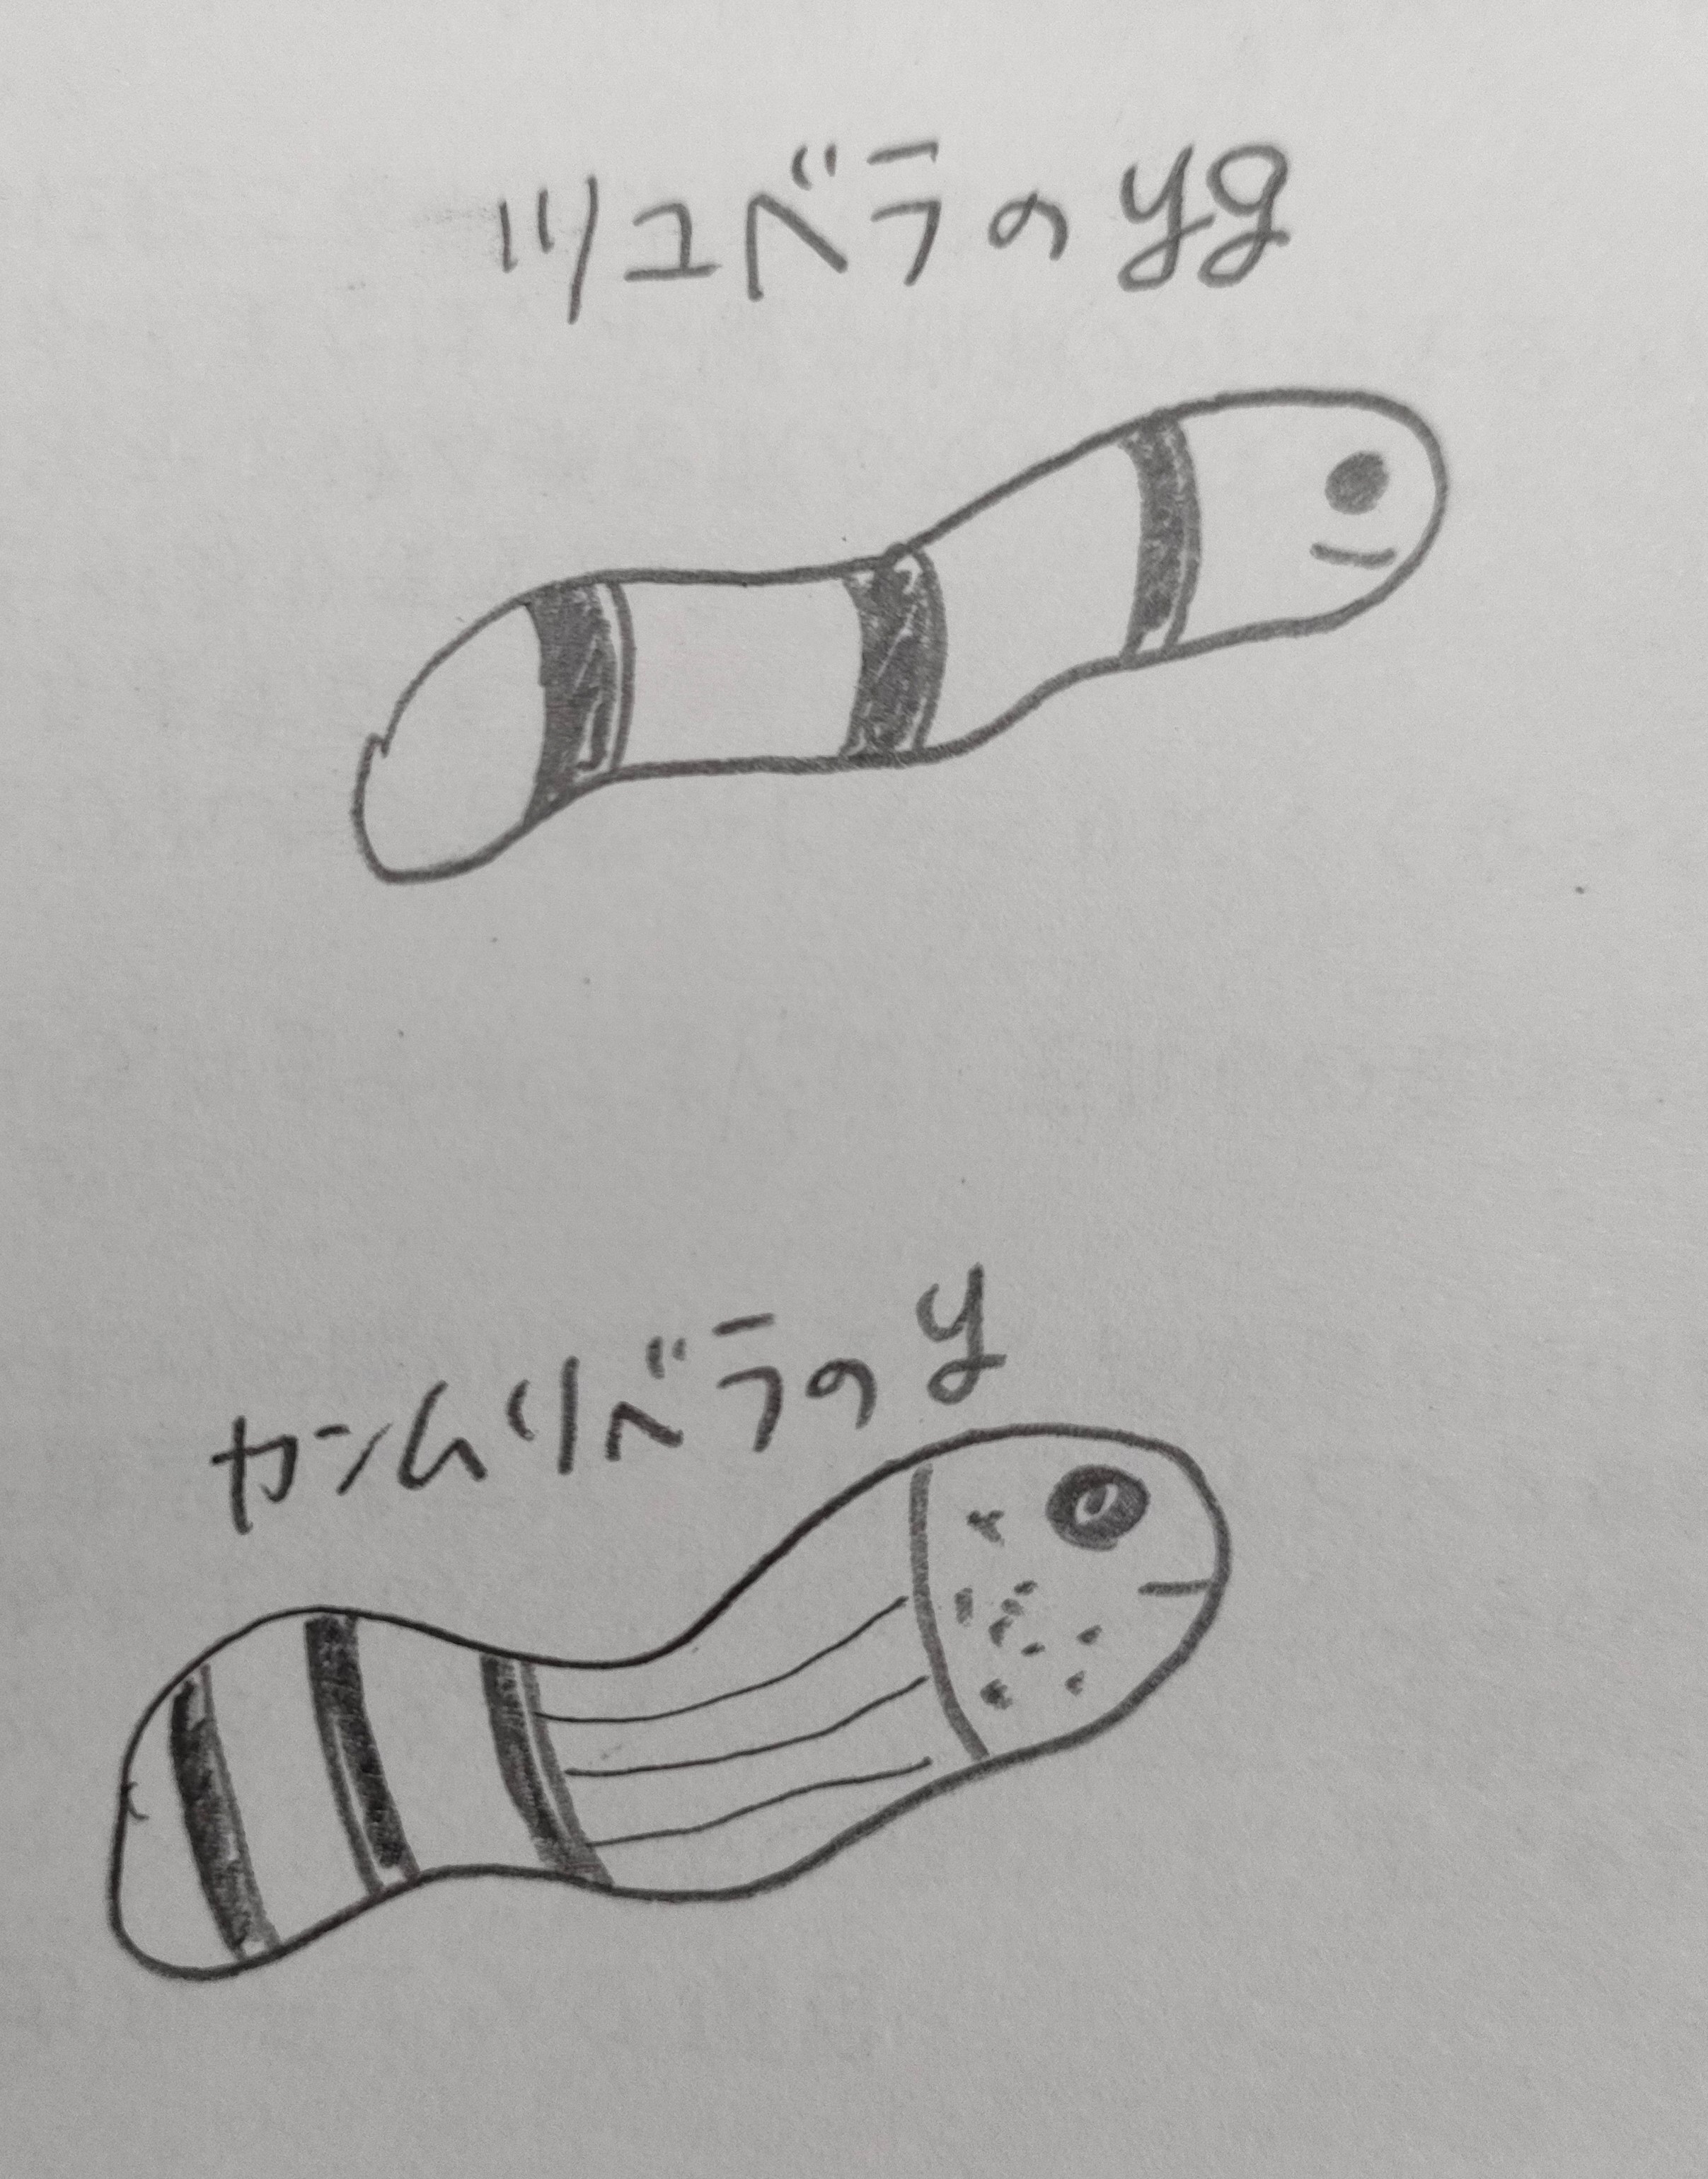 ツユベラのyg
カンムリベラのy